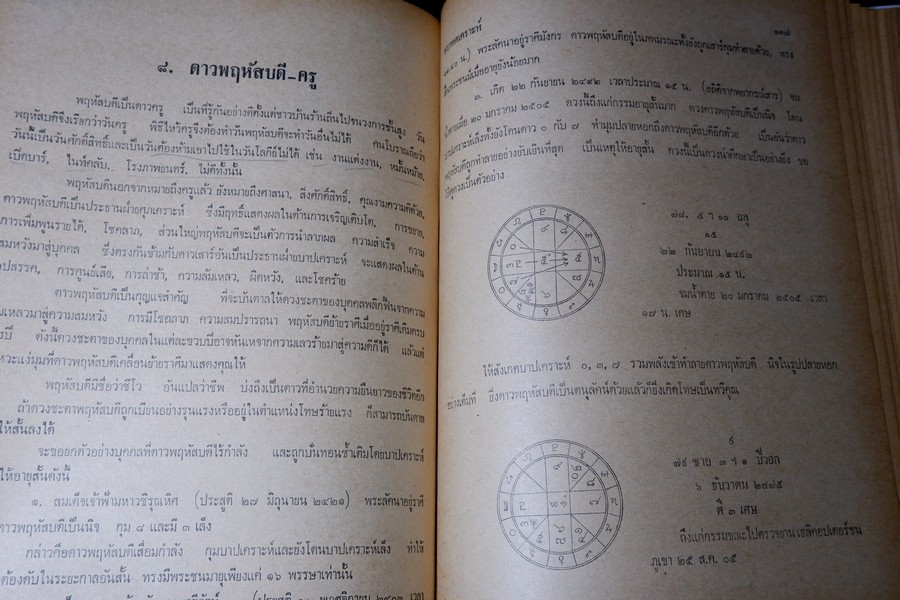 ๘. ดาวพฤหัสบดี-ครู
พฤหัสบดีเป็นดาวครู เป็นที่รู้กันอย่างดีตั้งแต่ชาวบ้านร้านถิ่นไปจนวงการชั้นสูง วัน
พฤหัสบดีจึงเรียกว่าวันครู พิธีไหว้ครูจึงต้องทำวันพฤหัสบดีจะทำวันอื่นไม่ได้ คนโบราณถือว่า
วันนี้เป็นวันศักดิ์สิทธิ์และเป็นวันต้องห้ามเอาไปใช้ในวันโลกีย์ไม่ได้ เช่น งานแต่งงาน, หมั้นหมาย,
เปิดบาร์, ไนท์คลับ, โรงภาพยนตร์, ไม่ดีทั้งนั้น
พฤหัสบดีนอกจากหมายถึงครูแล้ว ยังหมายถึงศาสนา, สิ่งศักดิ์สิทธิ์, คุณงามความดีด้วย,
ดาวพฤหัสบดีเป็นประธานฝ่ายศุภเคราะห์ ซึ่งมีฤทธิ์แสดงผลในด้านการเจริญเติบโต, การขยาย,
การเพิ่มพูนรายได้, โชคลาภ, ส่วนใหญ่พฤหัสบดีจะเป็นตัวการนำลาภผล ความสำเร็จ ความ
สมหวังมาสู่บุคคล ซึ่งตรงกันข้ามกับดาวเสาร์อันเป็นประธานฝ่ายบาปเคราะห์ จะแสดงผลในด้าน
อุปสรรค, การสูญเสีย, การล่าช้า, ความล้มเหลว, ผิดหวัง, และโชคร้าย
ดาวพฤหัสบดีเป็นกุญแจสำคัญ ที่จะบันดาลให้ดวงชะตาของบุคคลพลิกฟื้นจากความ
มเหลวมาสู่ความสมหวัง การมีโชคลาภ ความสมปรารถนา พฤหัสบดีย้ายราศีเมื่ออยู่ราศีเดิมครบ
ปี ดังนี้ดวงชะตาของบุคคลในแต่ละขวบปีอาจหันเหจากความเลวร้ายมาสู่ความดีก็ได้ แล้วแต่
แง่มุมที่ดาวพฤหัสบดีเคลื่อนย้ายราศีมาแสดงคุณให้
พฤหัสบดีมีชื่อว่าชีโว อันแปลว่าชีพ บ่งถึงเป็นดาวที่อำนวยความยืนยาวของชีวิตอีก
ถ้าดวงชะตาพฤหัสบดีถูกเบียนอย่างรุนแรงหรืออยู่ในตำแหน่งโทษร้ายแรง ก็สามารถบันดาล
ให้สั้นลงได้
จะขอยกตัวอย่างบุคคลที่ดาวพฤหัสบดีไร้กำลัง และถูกบั่นทอนซ้ำเติมโดยบาปเคราะห์
ให้อายุสั้นดังนี้
๑. สมเด็จเจ้าฟ้ามหาวชิรุณหิศ (ประสูติ ๒๗ มิถุนายน ๒๔๒๑) พระลัคนาอยู่ราศี
ดาวพฤหัสบดีเป็นนิจ กุม ๘ และมี ๓ เล็ง
กล่าวคือดาวพฤหัสบดีเสื่อมกำลัง กุมบาปเคราะห์และยังโดนบาปเคราะห์เล็ง ทำให้
ต้องดับในระยะกาลอันสั้น ทรงมีพระชนมายุเพียงแค่ ๑๖ พรรษาเท่านั้น
๑๑๗
น.) พระลัคนาอยู่ราศีมังกร ดาวพฤหัสบดีอยู่ในภพมรณะทั้งยังถูกเสาร์กุมทำลายด้วย, ทรง
สิ้นพระชนม์เมื่ออายุยังน้อยมาก
๓. เกิด ๒๒ กันยายน ๒๔๙๒ เวลาประมาณ ๑๕ น. (สถิติจากพยากรณ์สาร)
๒๐ มกราคม ๒๕๐๕ ดวงนี้ถึงแก่กรรมอายุสั้นมาก ดาวพฤหัสบดีเป็นนิจ โดน
บาปเคราะห์เล็งทั้งยังโดนดาว ๐ กับ ๗ ทำมุมปลายหอกถึงดาวพฤหัสบดีอีกด้วย เป็นอันว่าดาว
พฤหัสบดีถูกทำลายอย่างยับเยินที่สุด เป็นเหตุให้อายุสั้น ดวงนี้เป็นดวงน่าศึกษาเป็นอย่างยิ่ง ขอ
ให้ดูดวงเป็นตัวอย่าง
๗๘. ๕ ฯ ๑๐ ฉลู
๑๕
๒๒ กันยายน ๒๔๙๒
ประมาณ ๑๕ น.
จมน้ำตาย ๒๐ มกราคม ๒๕๐๕ เวลา
๑๗ น. เศษ
ให้สังเกตบาปเคราะห์ ๐, ๓, ๗ รวมพลังเข้าทำลายดาวพฤหัสบดี นิจในรูปปลายหอก
อย่างเต็มที่ ยิ่งดาวพฤหัสบดีเป็นตนุลัคน์ด้วยแล้วก็ยิ่งเกิดโทษเป็นทวีคูณ
๙
๗๙ ชาย ๓ ฯ ๑ ปีวอก
๖ ธันวาคม ๒๔๗๕
ตี ๓ เศษ
ถึงแก่กรรมขณะไปตรวจงานเฮลิคอปเตอร์ชน
ภูเขา ๒๕ ส.ค. ๐๕